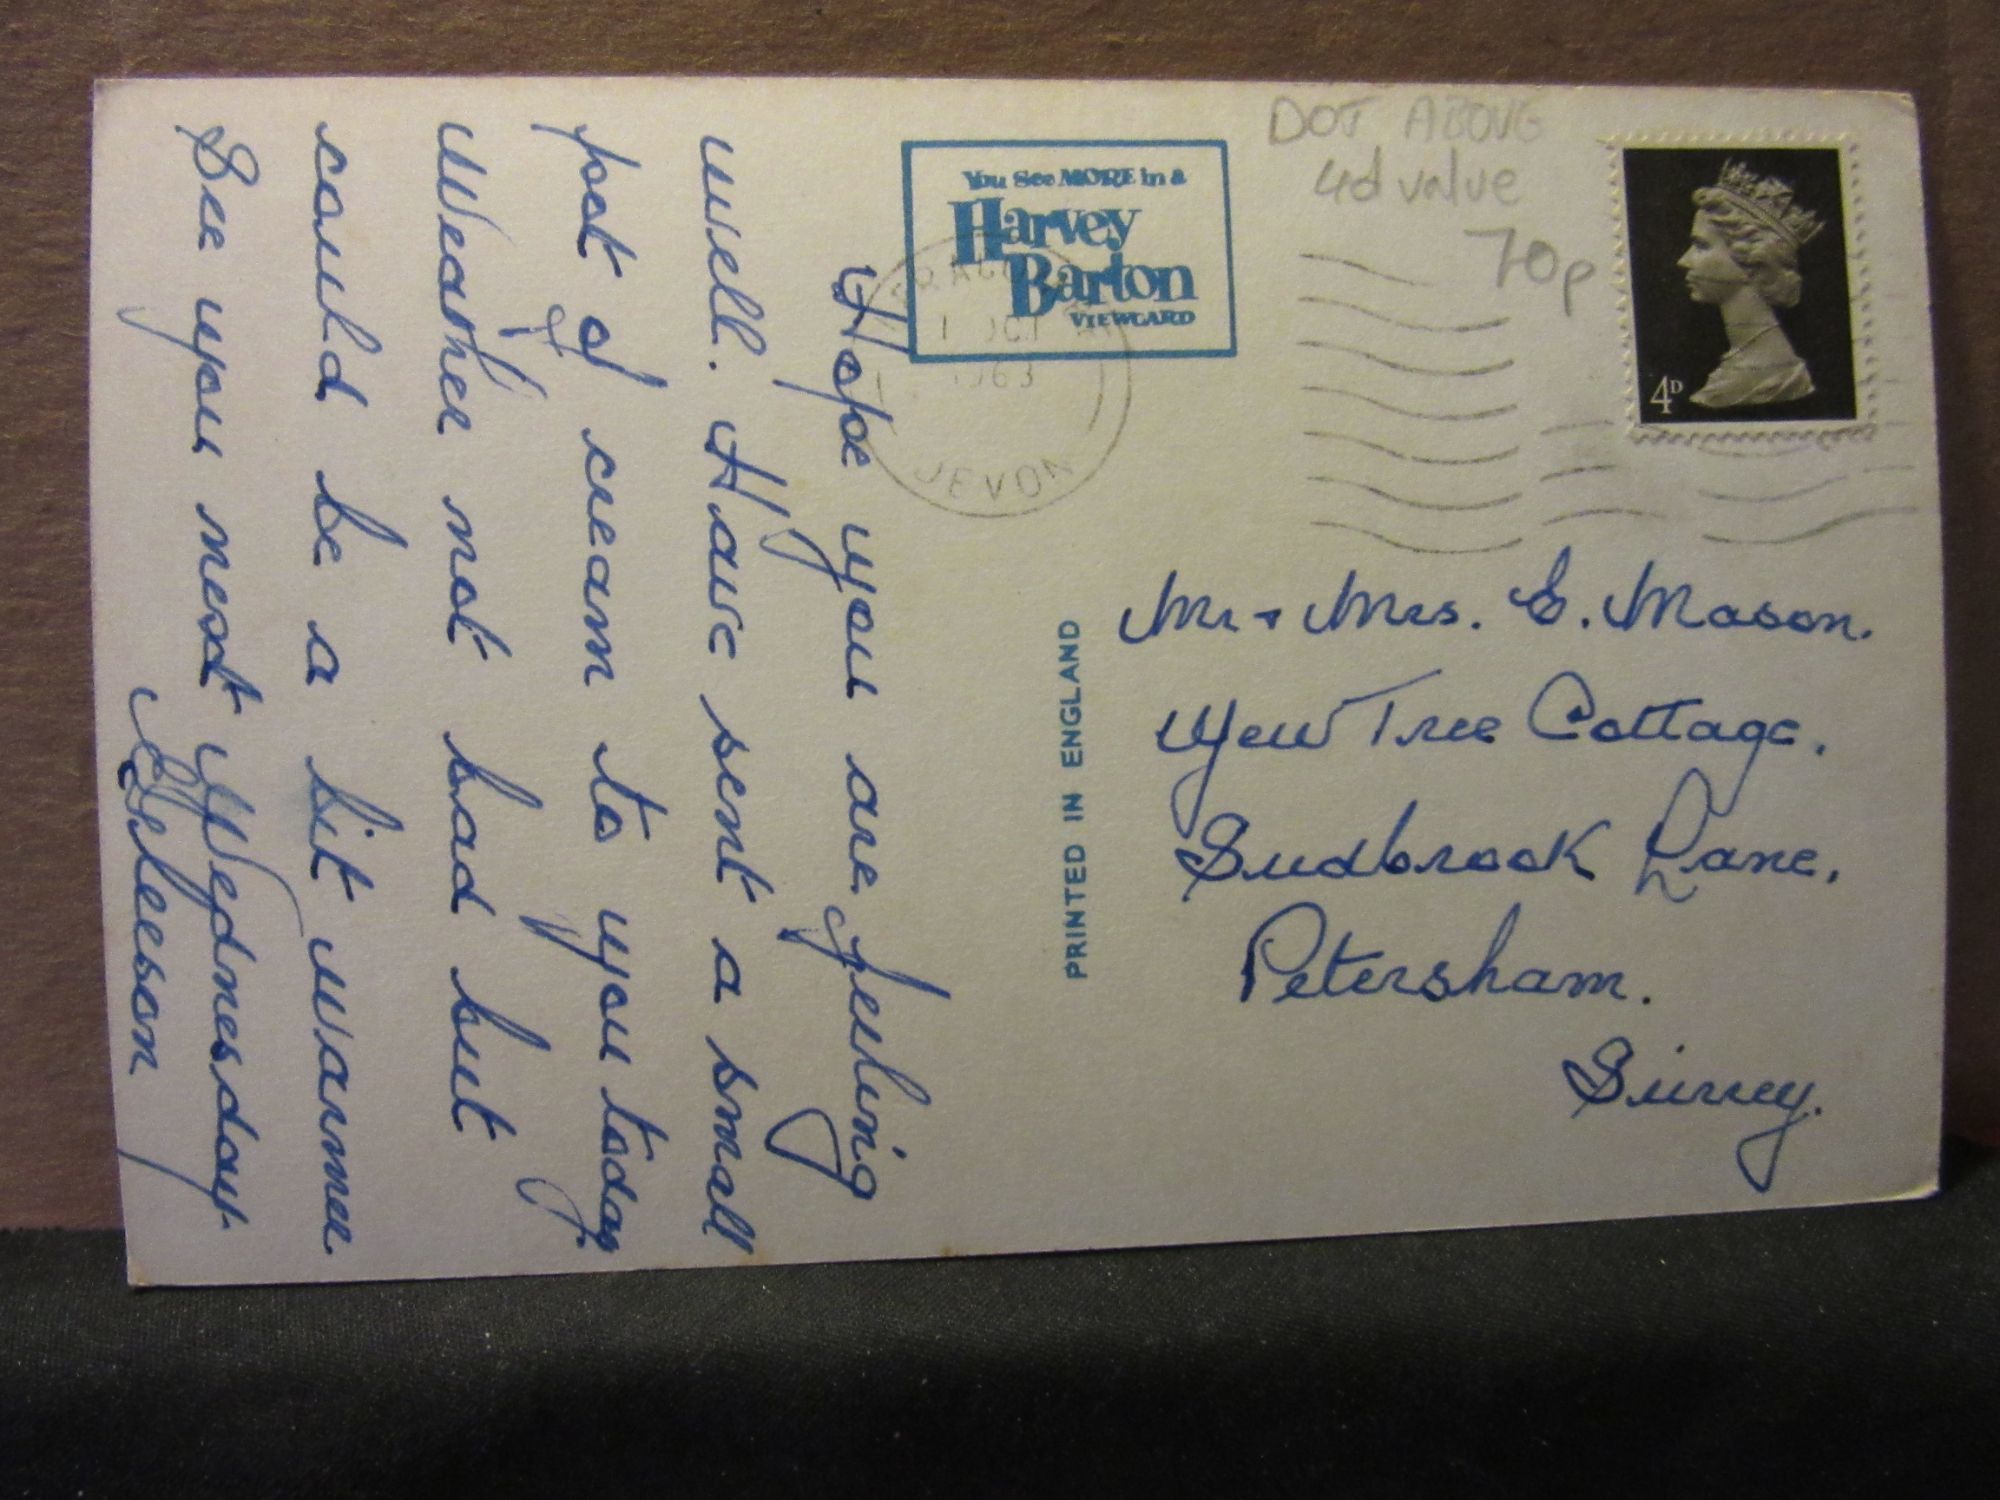 Hope you are feeling
well. Have sent a small
pot of cream to you today
Weather not bad but
could be a bit warmer
See you next Wednesday.
Gleeson
You See MORE in a
Harvey
Barton
VIEWCARD
1 OCT
DEVON
DOT ABOVE
4d value
70p
4D
PRINTED IN ENGLAND
Mr. + Mrs. E. Mason.
Yew Tree Cottage.
Sudbrook Lane,
Petersham.
Surrey.